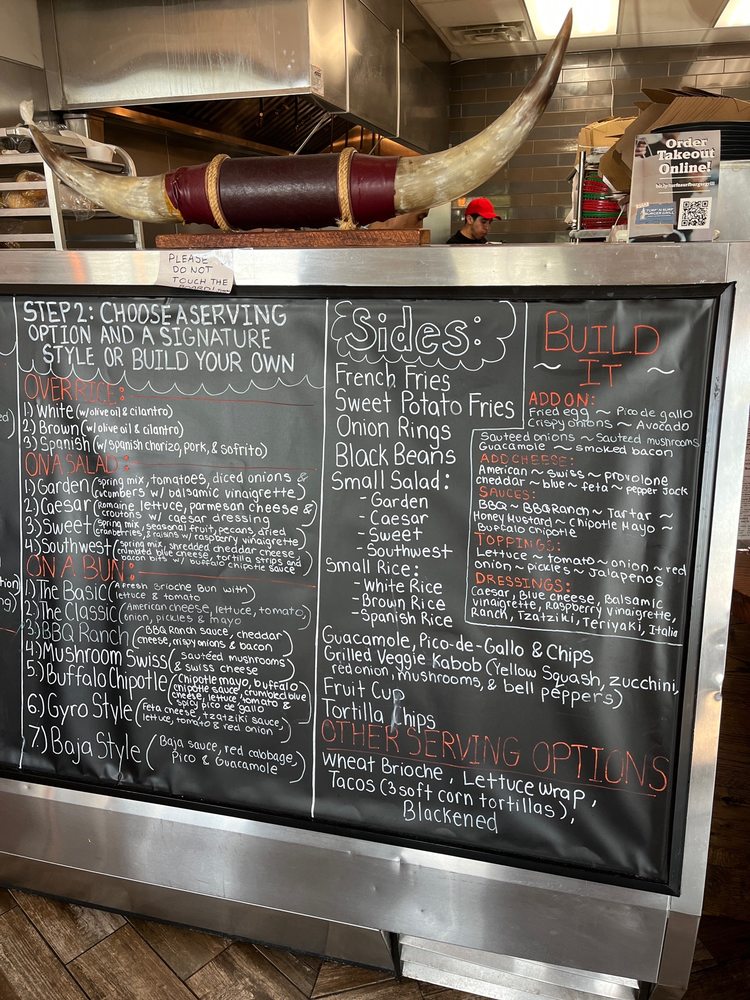 Order
Takeout
Online!
PLEASE
DO NOT
TOUCH THE
STEP 2: CHOOSE A SERVING
OPTION AND A SIGNATURE
STYLE OR BUILD YOUR OWN
OVER RICE:
1) White (w/olive oil & cilantro)
2) Brown (w/olive oil & cilantro)
3) Spanish (w/spanish chorizo, pork, & sofrito)
ON A SALAD:
1) Garden (spring mix, tomatoes, diced onions &
cucumbers w/ balsamic vinaigrette)
2) Caesar (Romaine lettuce, parmesan cheese &
croutons w/ caesar dressing
3) Sweet (spring mix, seasonal fruit, pecans, dried
cranberries, & raisins w/ raspberry vinaigrette)
4) Southwest (spring mix, shredded cheddar cheese,
crumbled blue cheese, tortilla strips and
bacon bits w/ buffalo chipotle sauce)
ON A BUN:
1) The Basic (A fresh Brioche Bun with
lettuce & tomato)
2) The Classic (American cheese, lettuce, tomato,
onion, pickles & mayo)
3) BBQ Ranch (BBQ Ranch sauce, cheddar
cheese, crispy onions & bacon)
4) Mushroom Swiss (Sautéed mushrooms
& swiss cheese)
5) Buffalo Chipotle (chipotle mayo, buffalo
chipotle sauce, crumbled blue
cheese, lettuce, tomato &
spicy pico de gallo)
6) Gyro Style (Feta cheese, tzatziki sauce,
lettuce, tomato & red onion)
7) Baja Style (Baja sauce, red cabbage,
Pico & Guacamole)
Sides:
French Fries
Sweet Potato Fries
Onion Rings
Black Beans
Small Salad:
- Garden
- Caesar
- Sweet
- Southwest
Small Rice:
- White Rice
- Brown Rice
- Spanish Rice
Guacamole, Pico-de-Gallo & Chips
Grilled Veggie Kabob (Yellow Squash, zucchini,
red onion, mushrooms, & bell peppers)
Fruit Cup
Tortilla Chips
OTHER SERVING OPTIONS
Wheat Brioche, Lettuce Wrap,
Tacos (3 soft corn tortillas),
Blackened
BUILD
~ IT ~
ADD ON:
Fried egg ~ Pico de gallo
Crispy onions ~ Avocado
Sauteed onions ~ Sauteed mushrooms
Guacamole ~ smoked bacon
ADD CHEESE:
American ~ Swiss ~ provolone
cheddar ~ blue ~ feta ~ pepper jack
SAUCES:
BBQ ~ BBQ Ranch ~ Tartar ~
Honey Mustard ~ Chipotle Mayo ~
Buffalo Chipotle
TOPPINGS:
Lettuce ~ tomato ~ onion ~ red
onion ~ pickles ~ Jalapenos
DRESSINGS:
Caesar, Blue Cheese, Balsamic
vinaigrette, Raspberry Vinaigrette,
Ranch, Tzatziki, Teriyaki, Italia